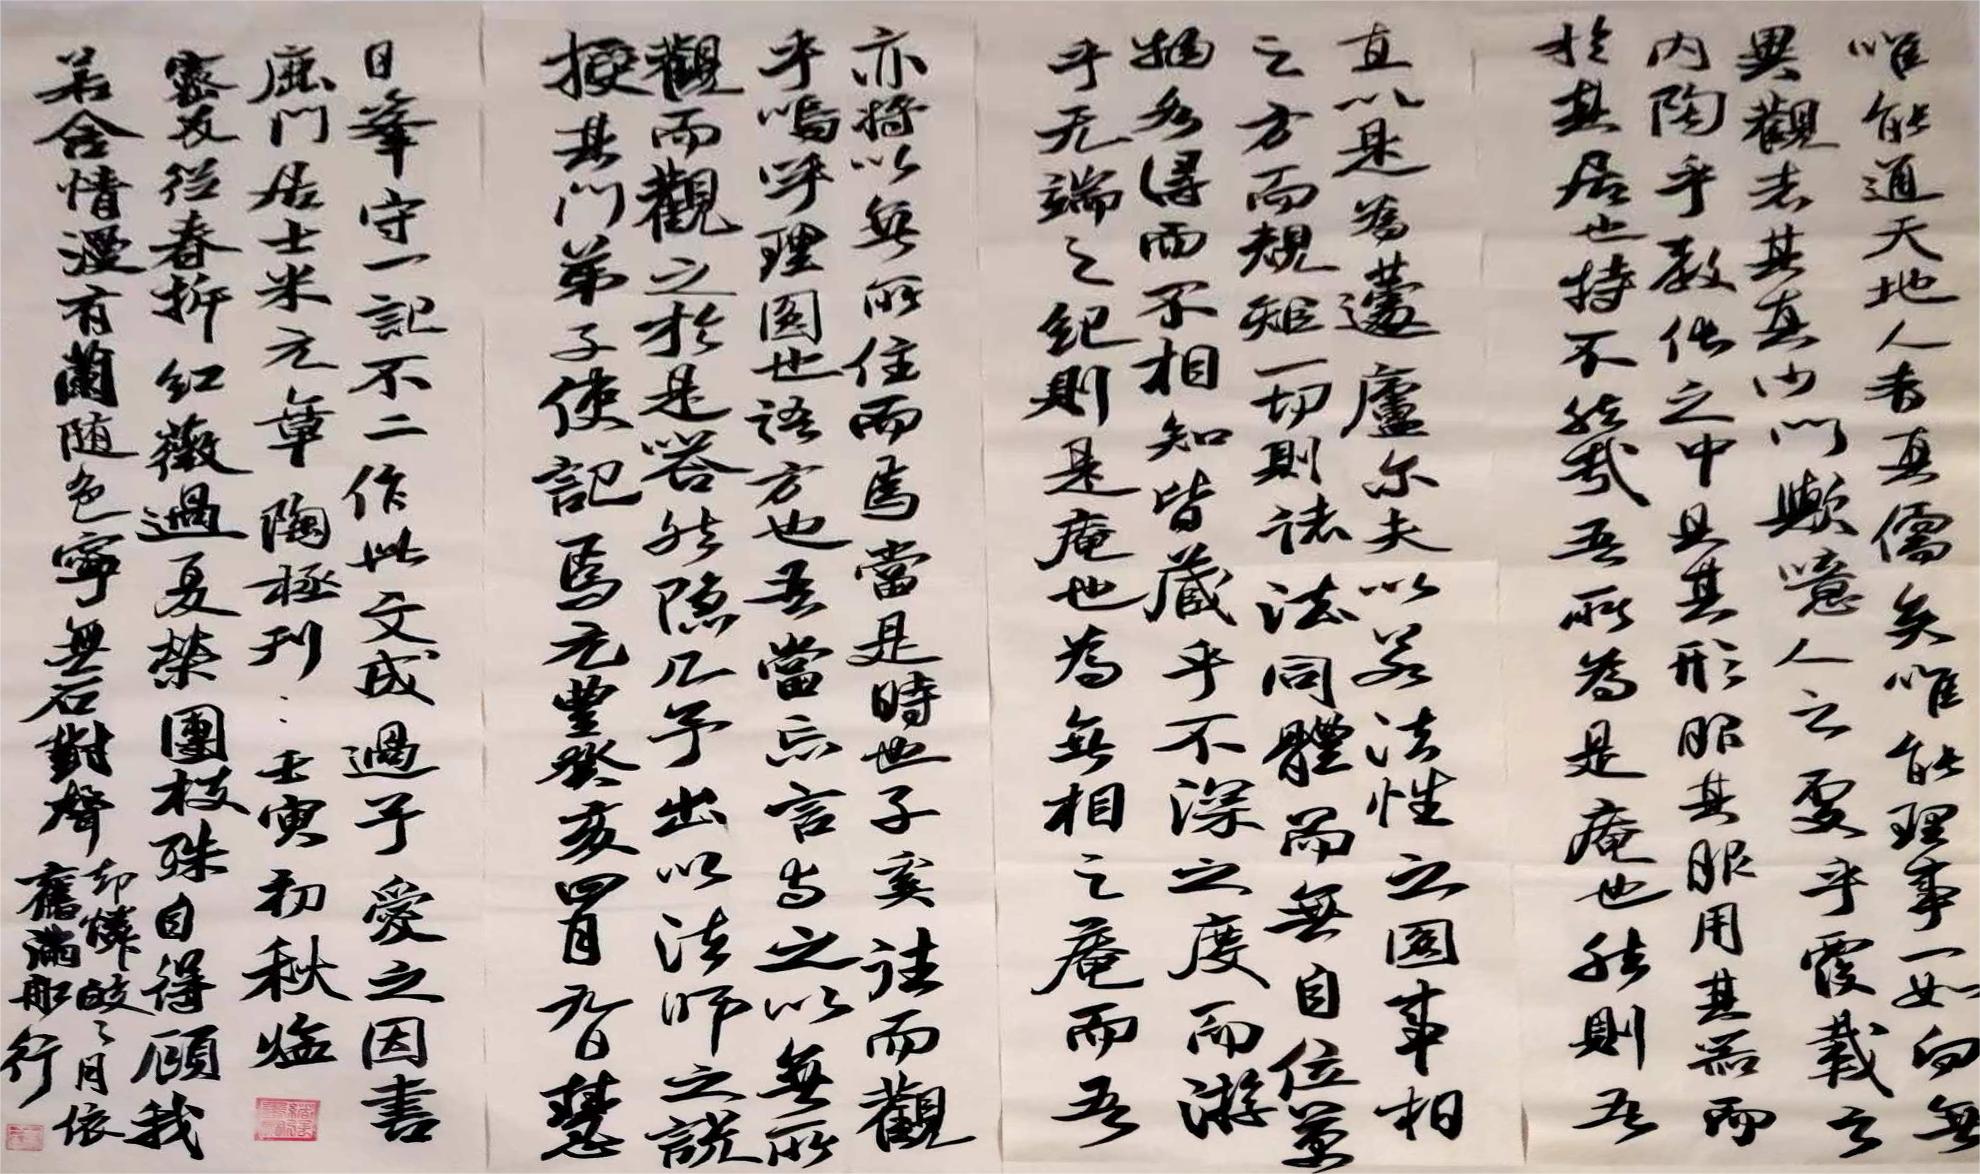 唯能通天地人者真儒矣唯能理事一如向無
異觀者其真沙門歟噫人之處乎覆載之
内陶乎教化之中具其形服其服用其器而
於其居也特不然哉吾所為是庵也然則吾
直以是為蘧廬尔夫以若法性之圆事相
之方而規矩一切則諸法同體而無自位萬
物各得而不相知皆藏乎不深之度而游
乎无端之紀則是庵也為無相之庵而吾
亦將以無所住而焉當是時也子奚往而觀
乎嗚呼理圆也語方也吾當忘言与之以無所
觀而觀之於是嗒然隱几予出以法師之説
授其門弟子使記焉元豐癸亥四月九日慧
日峯守一記不二作此文成過予愛之因書
鹿門居士米元章 陶拯刊 壬寅初秋臨
密友從春拆紅薇過夏榮團枝殊自得顧我
若含情漫有蘭随色寧無石對聲
却憐皎々月依
舊滿船行